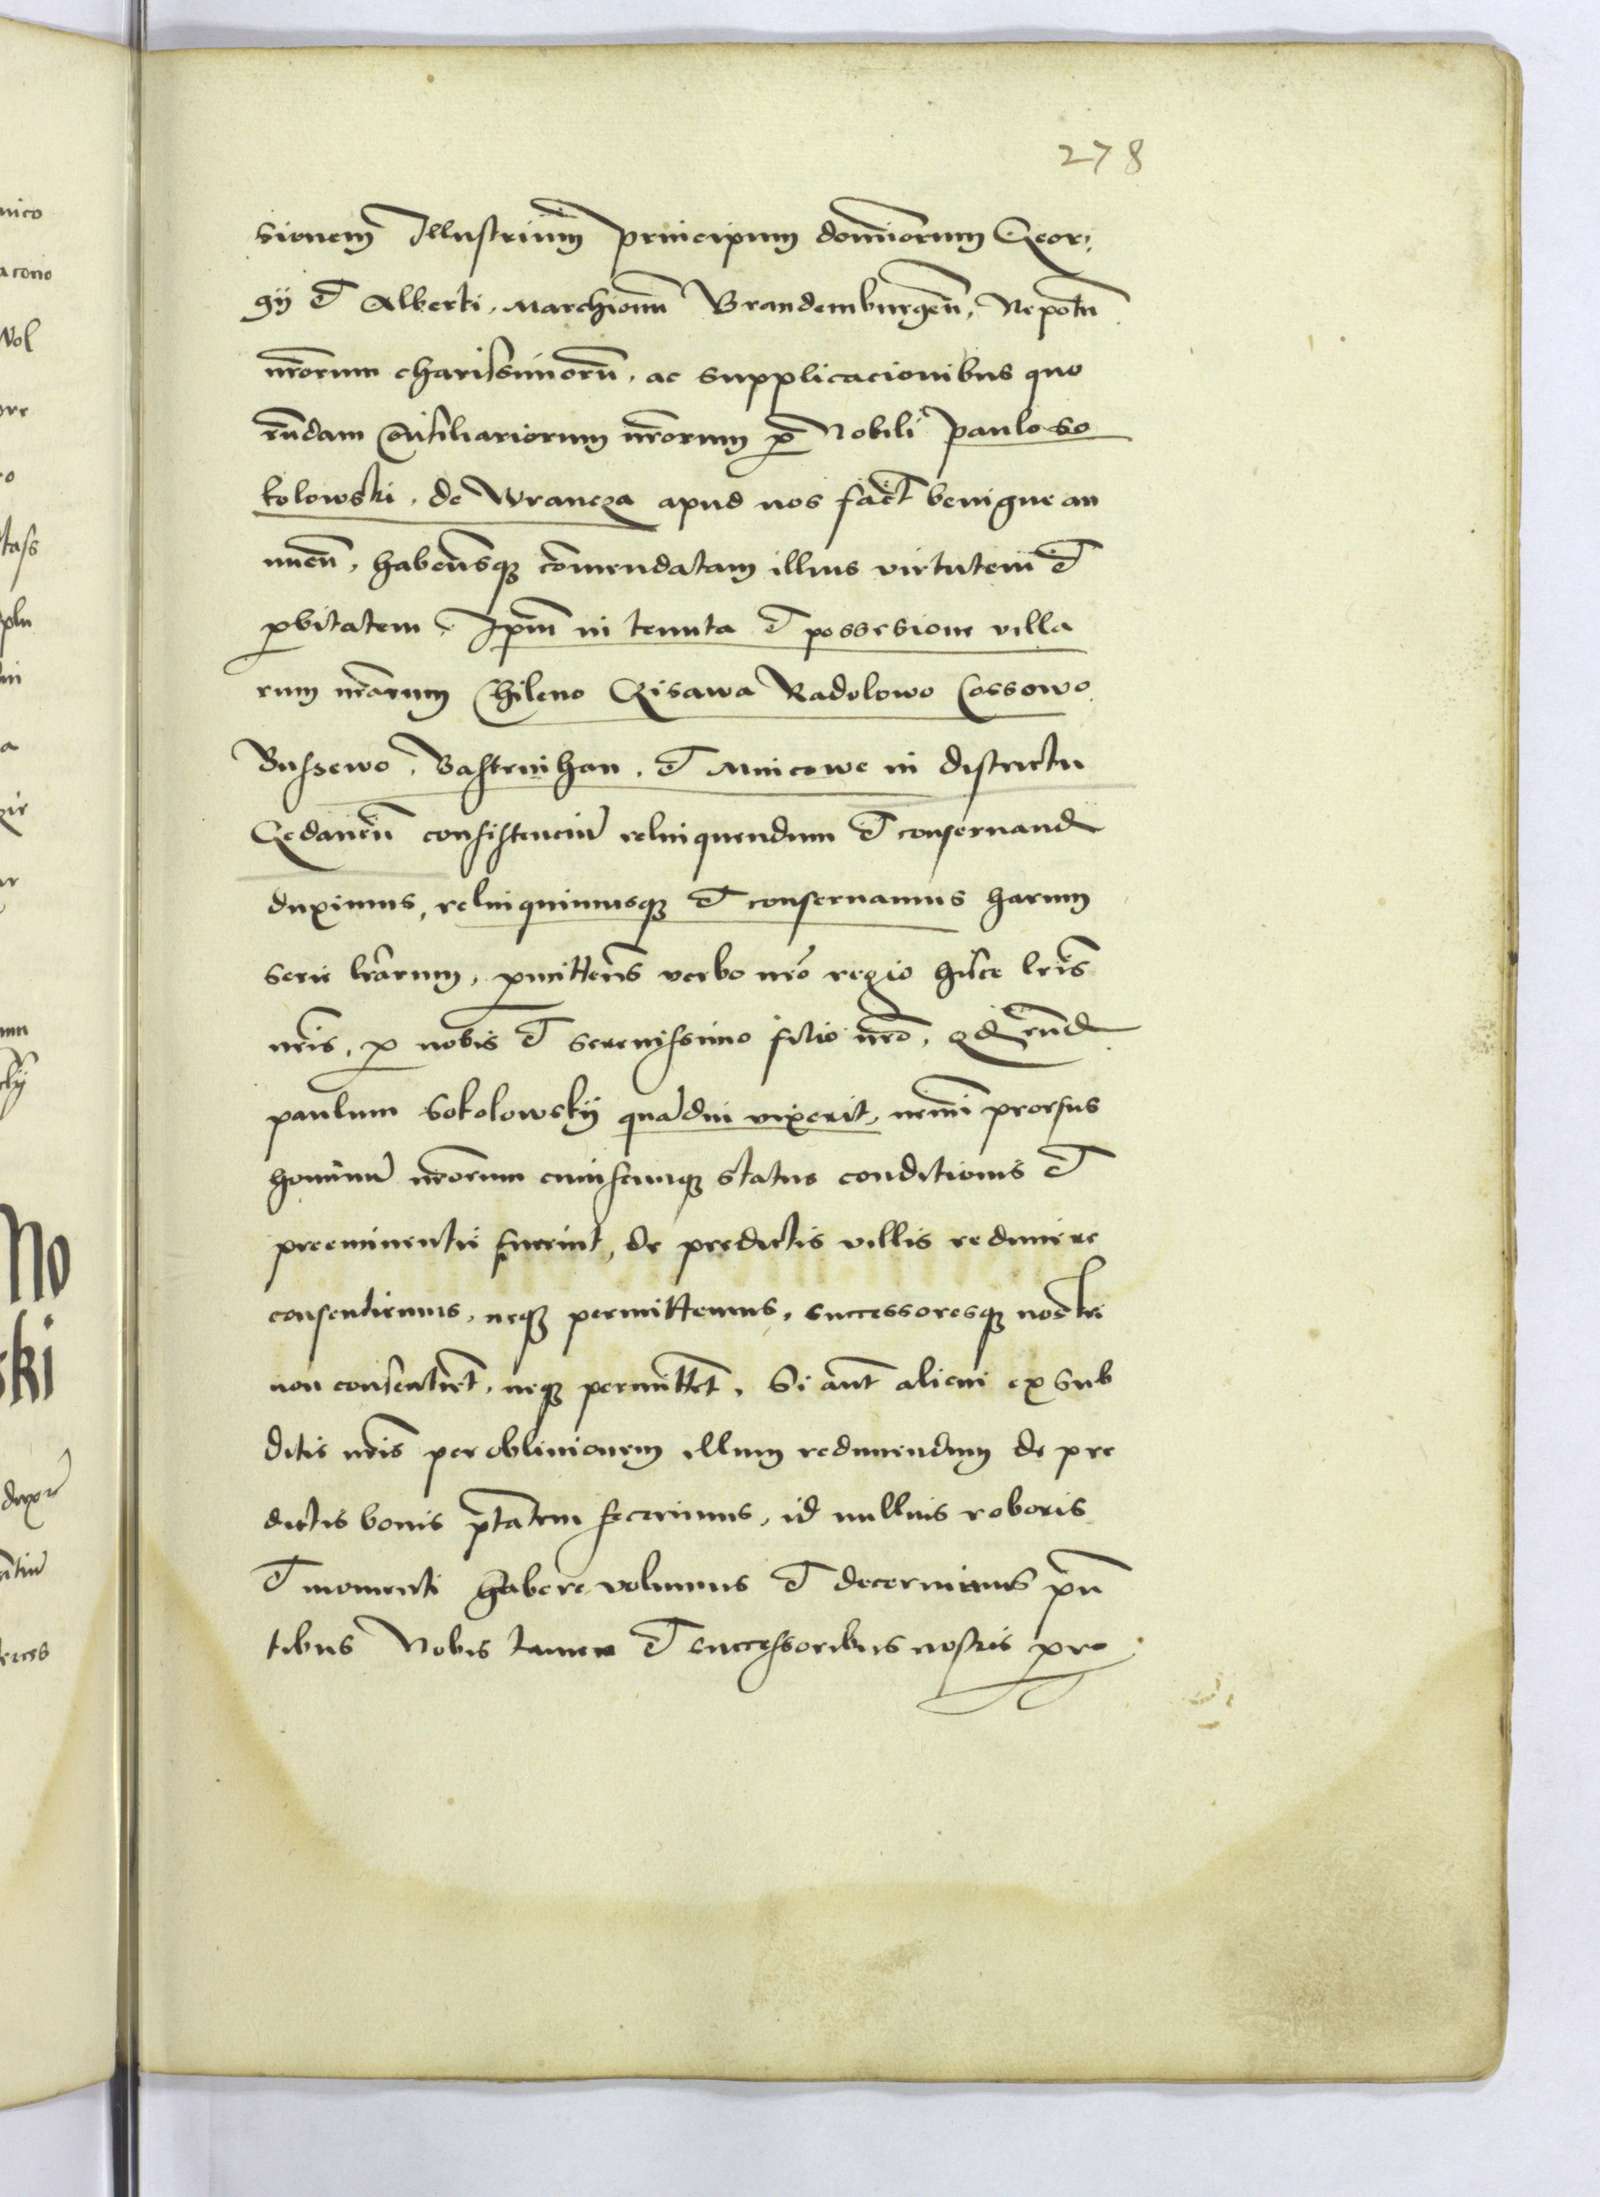 278
sionem Illustrium principum dominorum Geor
gij et Alberti, Marchionu Brandemburgen, Nepotu
nrorum charissimoru, ac supplicacionibus quo
rundam Consiliariorum nrorum p Nobili paulo So
kolowski, de Wrancza apud nos fact benigne an
nuen, habensq comendatam illius virtutem et
pbitatem, Ipm in tenuta et possesione villa
rum nrarum Chileno Risawa Radolowo Cossowo
Bussewo, Bastrnihan, et Mnicowe in districtu
Gedanen consistenciu relinquendum et conservand
duximus, relinquimusq et conservamus harum
serie lrarum, pmittens verbo nro regio hisce lris
nris, p nobis et serenissimo filio nro, qd eund
paulum Sokolowskij quadiu vixerit, nemi prorsus
hominu nrorum cuiuscunq status conditionis et
preeminentii fuerint, de predictis villis redimere
consentiemus, neq permittemus, successoresq nostri
non consentient, neq permittet, Si aut alicui ex Sub
ditis nris per oblivionem illum redimendum de pre
dictis bonis ptatem fecerimus, id nullius roboris
et momenti habere volumus et decernimus pn
tibus Nobis tamen et successoribus nostris pro